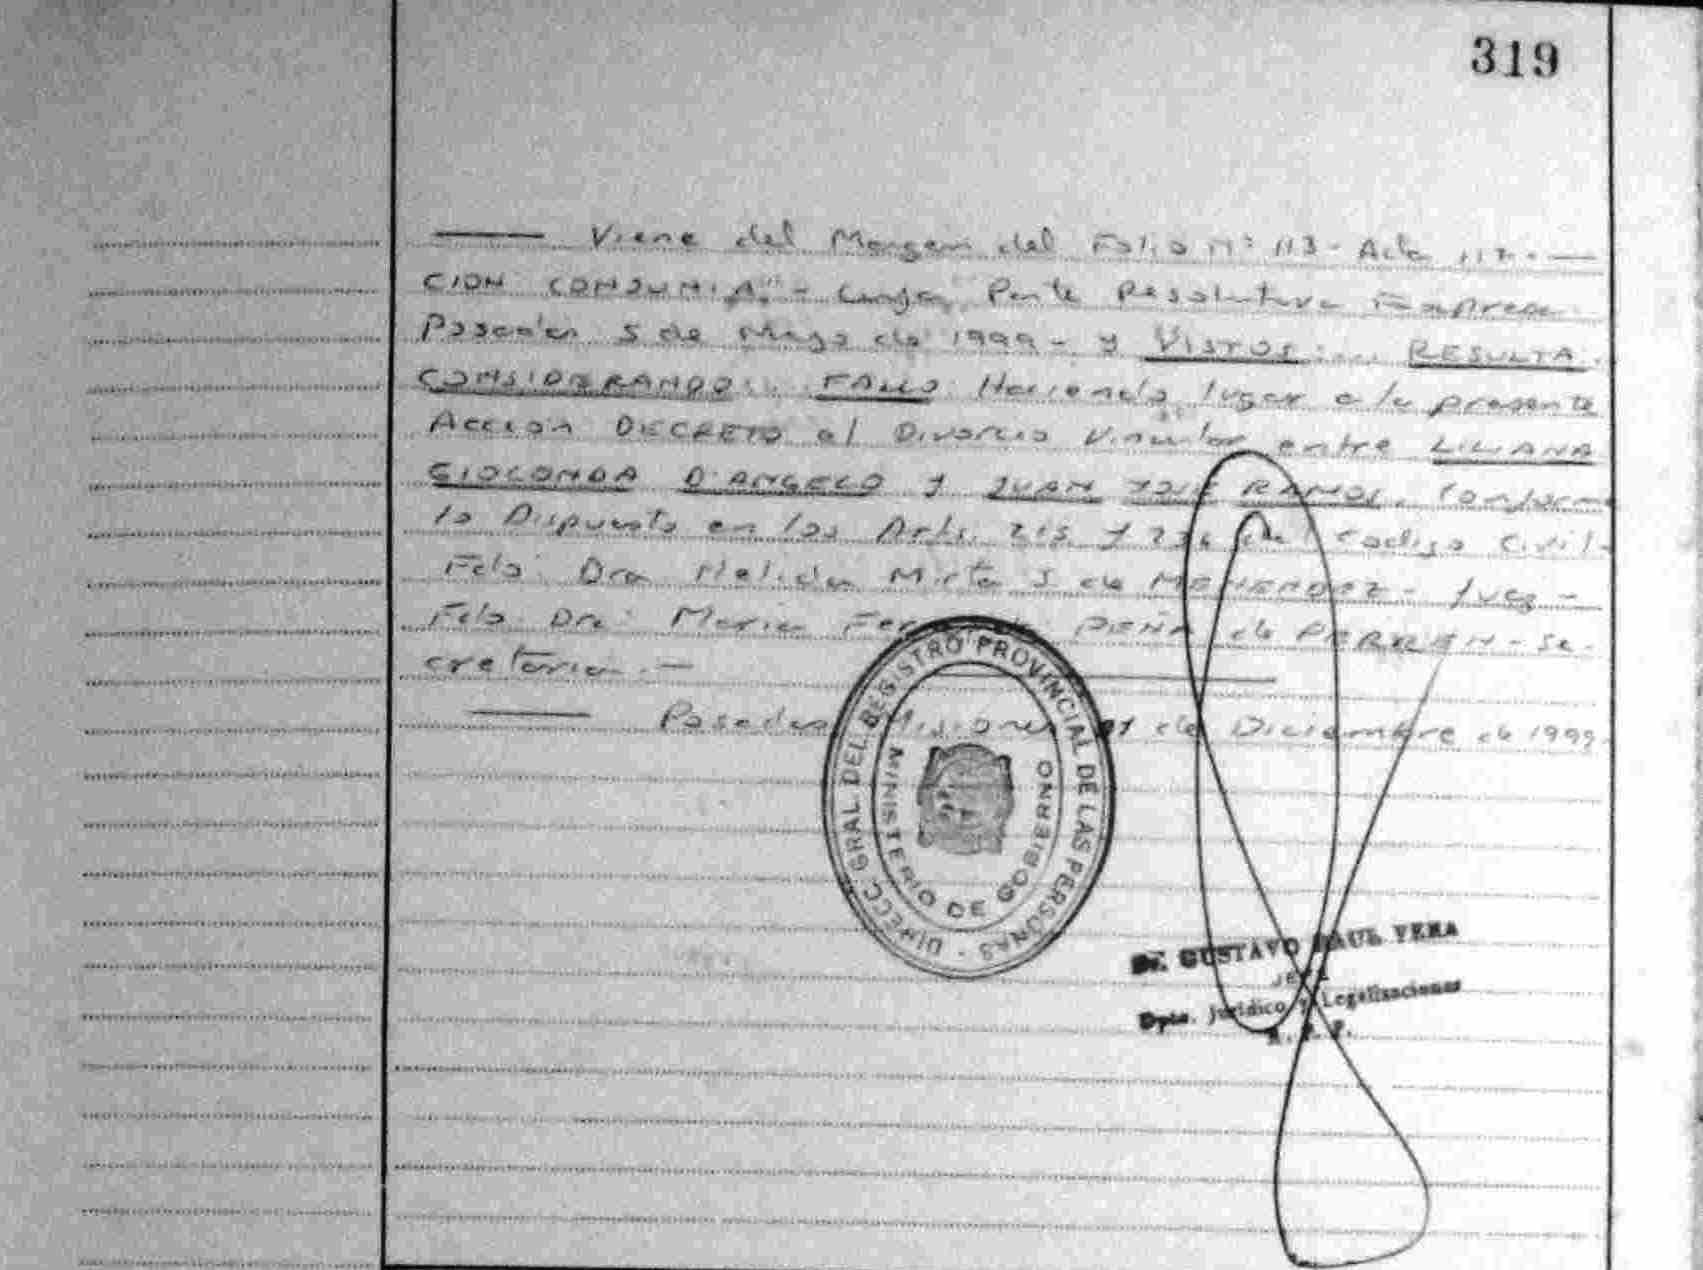 319
Viene del Margen del Folio Nº 113 - Acta 117. -
CION CONJUNTA" - Cuya Parte Resolutiva Expresa:
Posadas 5 de Mayo de 1999 - y VISTOS: ... RESULTA:
CONSIDERANDO: .. FALLO: Haciendo lugar a la presente
Acción DECRETO el Divorcio Vincular entre LILIANA
GIOCONDA D'ANGELO y JUAN JOSE RAMOS, Conforme
lo Dispuesto en los Arts. 215 y 236 del Codigo Civil -
Fdo. Dra Nelida Mirta S de MENENDEZ - Juez -
Fdo. Dra: Maria PEÑA de - Se-
cretaria. -
Posadas, Misiones, de Diciembre de 1999.
DIRECC. GRAL DEL REGISTRO PROVINCIAL DE LAS PERSONAS -
MINISTERIO DE GOBIERNO
Dr. GUSTAVO RAUL VERA
JEFE
Dpto. Jurídico y Legalizaciones
R. P. P.